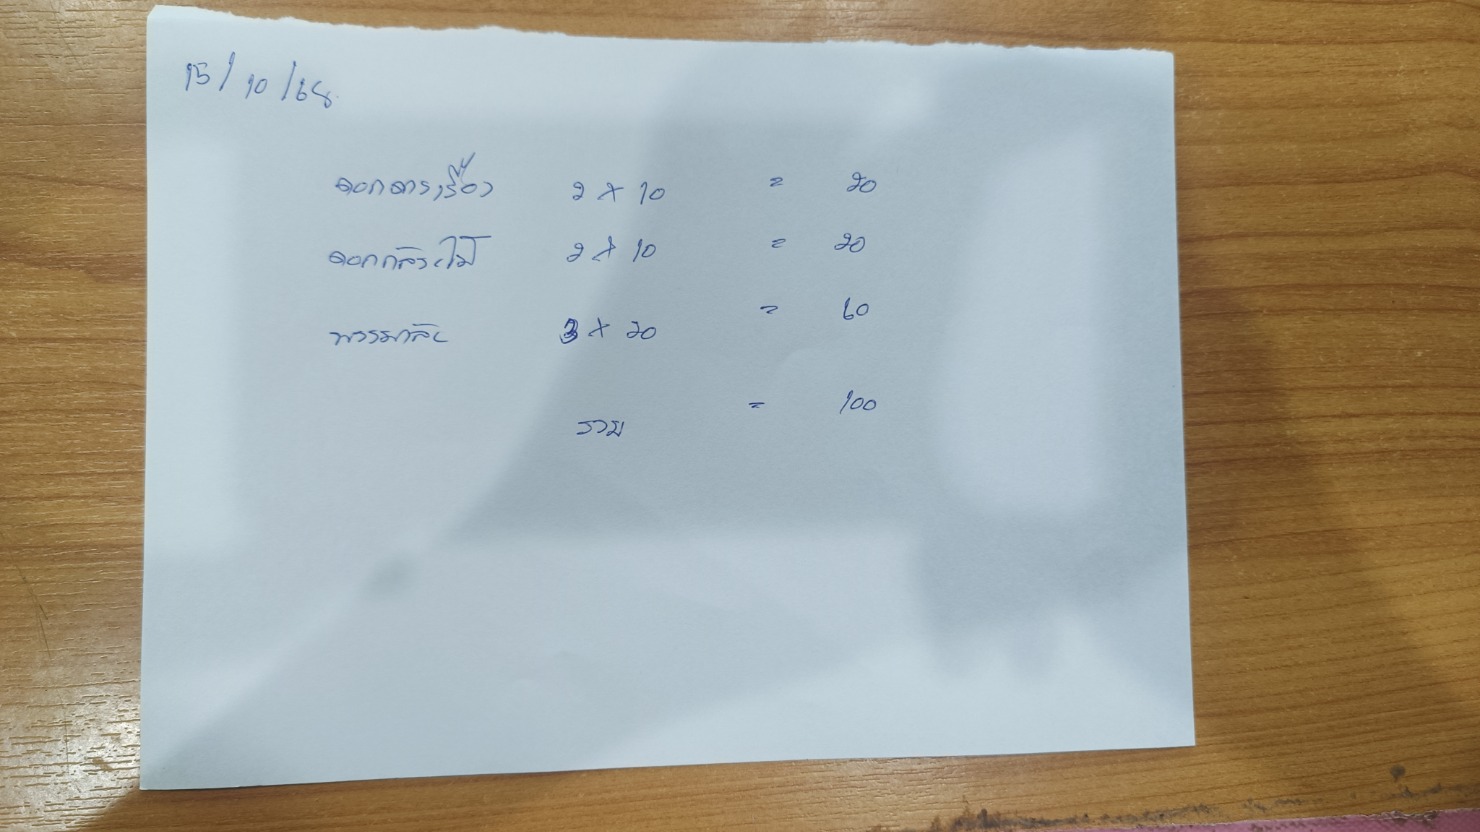 15/10/68
ดอกดาวเรือง 2 x 10 = 20
ดอกกล้วยไม้ 2 x 10 = 20
พวงมาลัย 3 x 20 = 60
รวม = 100